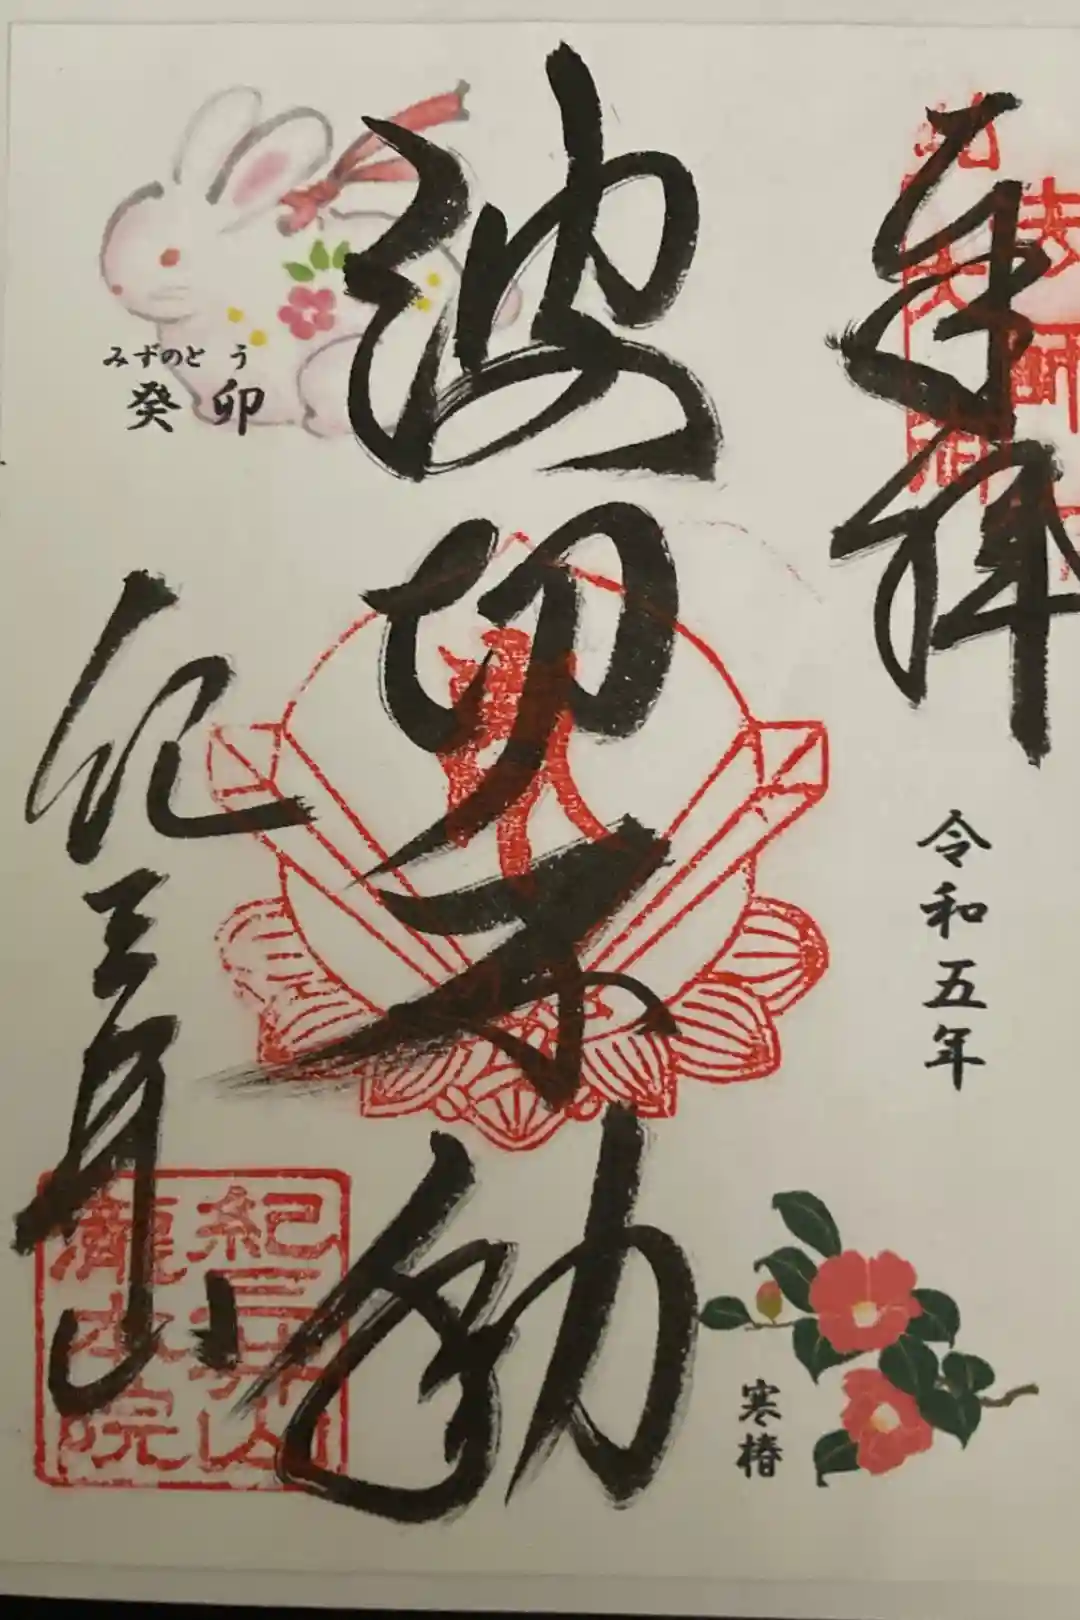 奉拝
令和五年
寒椿
波切不動
みずのと う
癸 卯
紀三井山
紀三井山
瀧本院